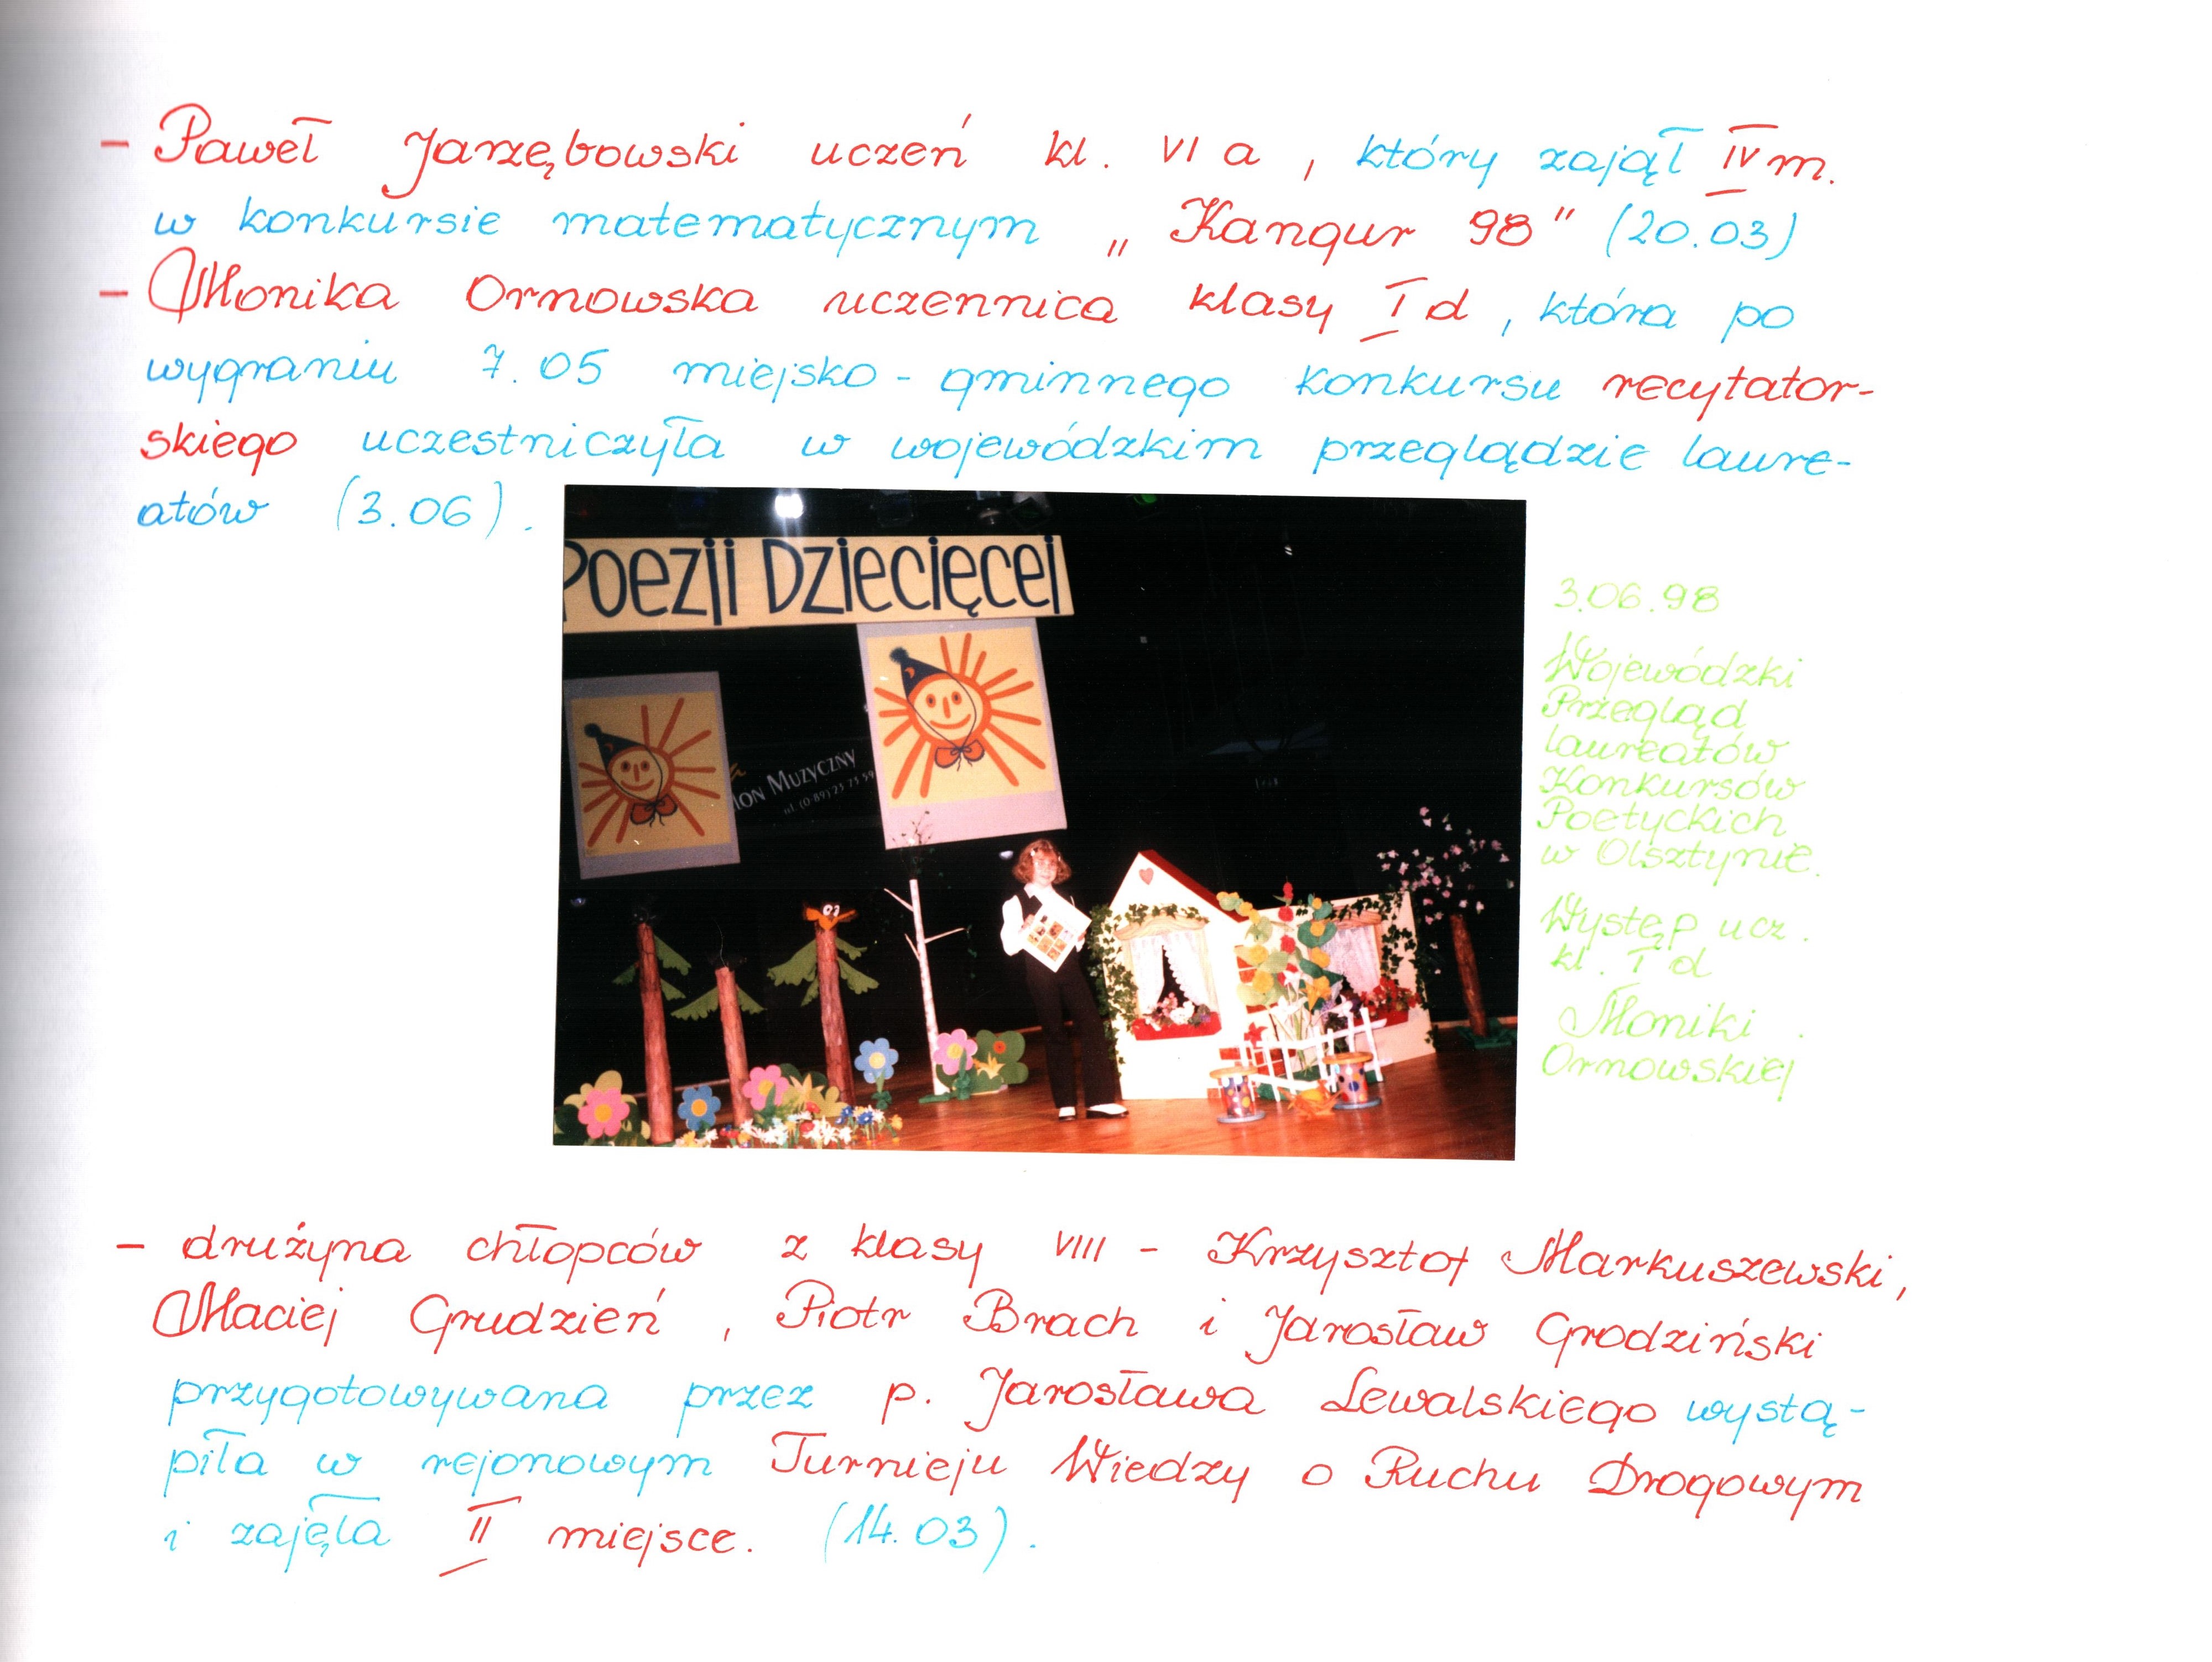 - Paweł Jarzębowski uczeń kl. VI a, który zajął IV m.
w konkursie matematycznym „Kangur 98" (20.03)
- Monika Ornowska uczennica klasy I d, która po
wygraniu 7.05 miejsko-gminnego konkursu recytator-
skiego uczestniczyła w wojewódzkim przeglądzie laure-
atów (3.06).
Poezji Dziecięcej
ON MUZYCZNY
3.06.98
Wojewódzki
Przegląd
laureatów
Konkursów
Poetyckich
w Olsztynie.
Występ ucz.
kl. I d
Moniki
Ornowskiej
- drużyna chłopców z klasy VIII - Krzysztof Markuszewski,
Maciej Grudzień, Piotr Brach i Jarosław Grodziński
przygotowywana przez p. Jarosława Lewalskiego wystą-
piła w rejonowym Turnieju Wiedzy o Ruchu Drogowym
i zajęła II miejsce. (14.03).